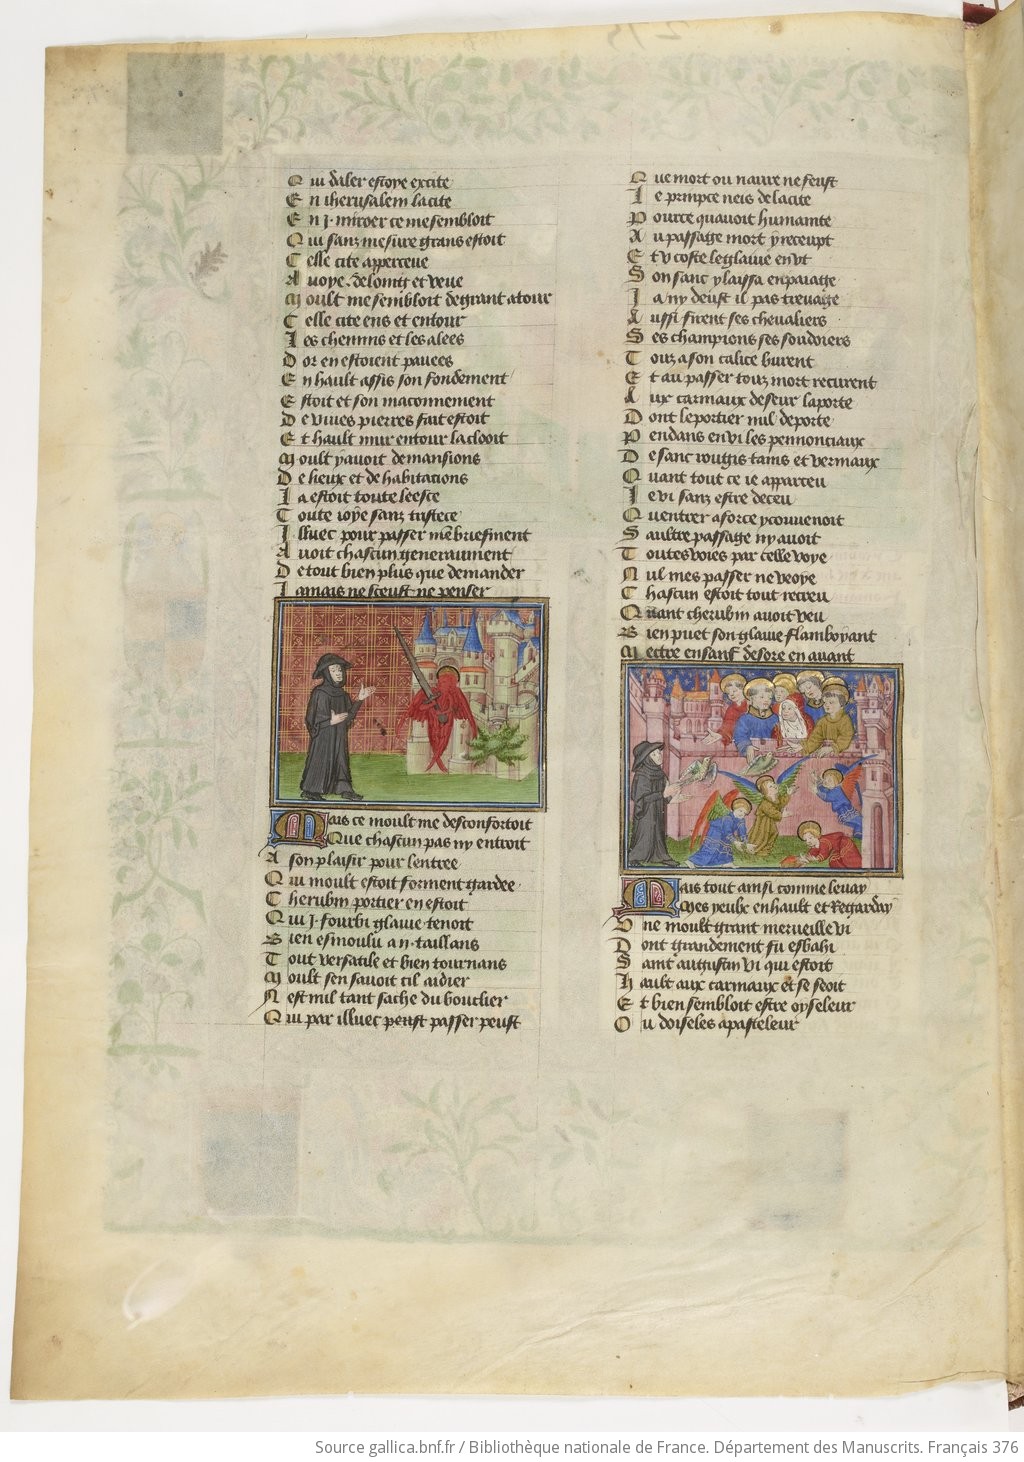 Qui daler estoye excite
En iherusalem la cite
En .j. miroer ce me sembloit
Qui sanz mesure grans estoit
Celle cite apperceue
Avoye de loing et veue
Moult me sembloit de grant atour
Celle cite ens et entour
Les chemins et les alees
Dor en estoient pavees
En hault assis son fondement
Estoit et son maconnement
De vives pierres fait estoit
Et hault mur entour la clooit
Moult y avoit de mansions
De lieux et de habitations
La estoit toute leesce
Toute ioye sanz tristece
Illuec pour passer briefment
Avoit chascun generaument
De tout bien plus que demander
Jamais ne sceust ne penser
Mais ce moult me desconfortoit
Que chascun pas ny entroit
A son plaisir pour lentree
Qui moult estoit forment gardee
Cherubin portier en estoit
Qui .j. fourbi glaive tenoit
Bien esmoulu a .ij. taillans
Tout versatile et bien tournans
Moult sen savoit cil aidier
Nest nul tant sache du bouclier
Qui par illuec peust passer peust
Que mort ou navre ne feust
Le prince neis de la cite
Pource quavoit humanite
Au passage mort y receupt
Et ou coste le glaive eut
Son sanc y laissa en paiage
Ja ny deust il pas treuage
Aussi firent ses chevaliers
Ses champions ses soudoiers
Touz a son calice burent
Et au passer touz mort recurent
Aux carniaux deseur la porte
Dont le portier nul deporte
Pendans en vi les pennonciaux
De sanc rougis tains et vermaux
Quant tout ce ie apparceu
Je vi sanz estre deceu
Quentrer a force y couvenoit
Saultre passage ny avoit
Toutes voies par celle voye
Nul mes passer ne veoye
Chascun estoit tout recreu
Quant cherubin avoit veu
Bien puet son glaive flamboyant
Mettre en sauf desore en avant
Mais tout ainsi comme levay
Mes yeulx en hault et Regarday
Une moult grant merveille vi
Dont grandement fu esbahi
Saint augustin vi qui estoit
Hault aux carniaux et se seoit
Et bien sembloit estre oyseleur
Ou doiseles apasteleur
Source gallica.bnf.fr / Bibliothèque nationale de France. Département des Manuscrits. Français 376